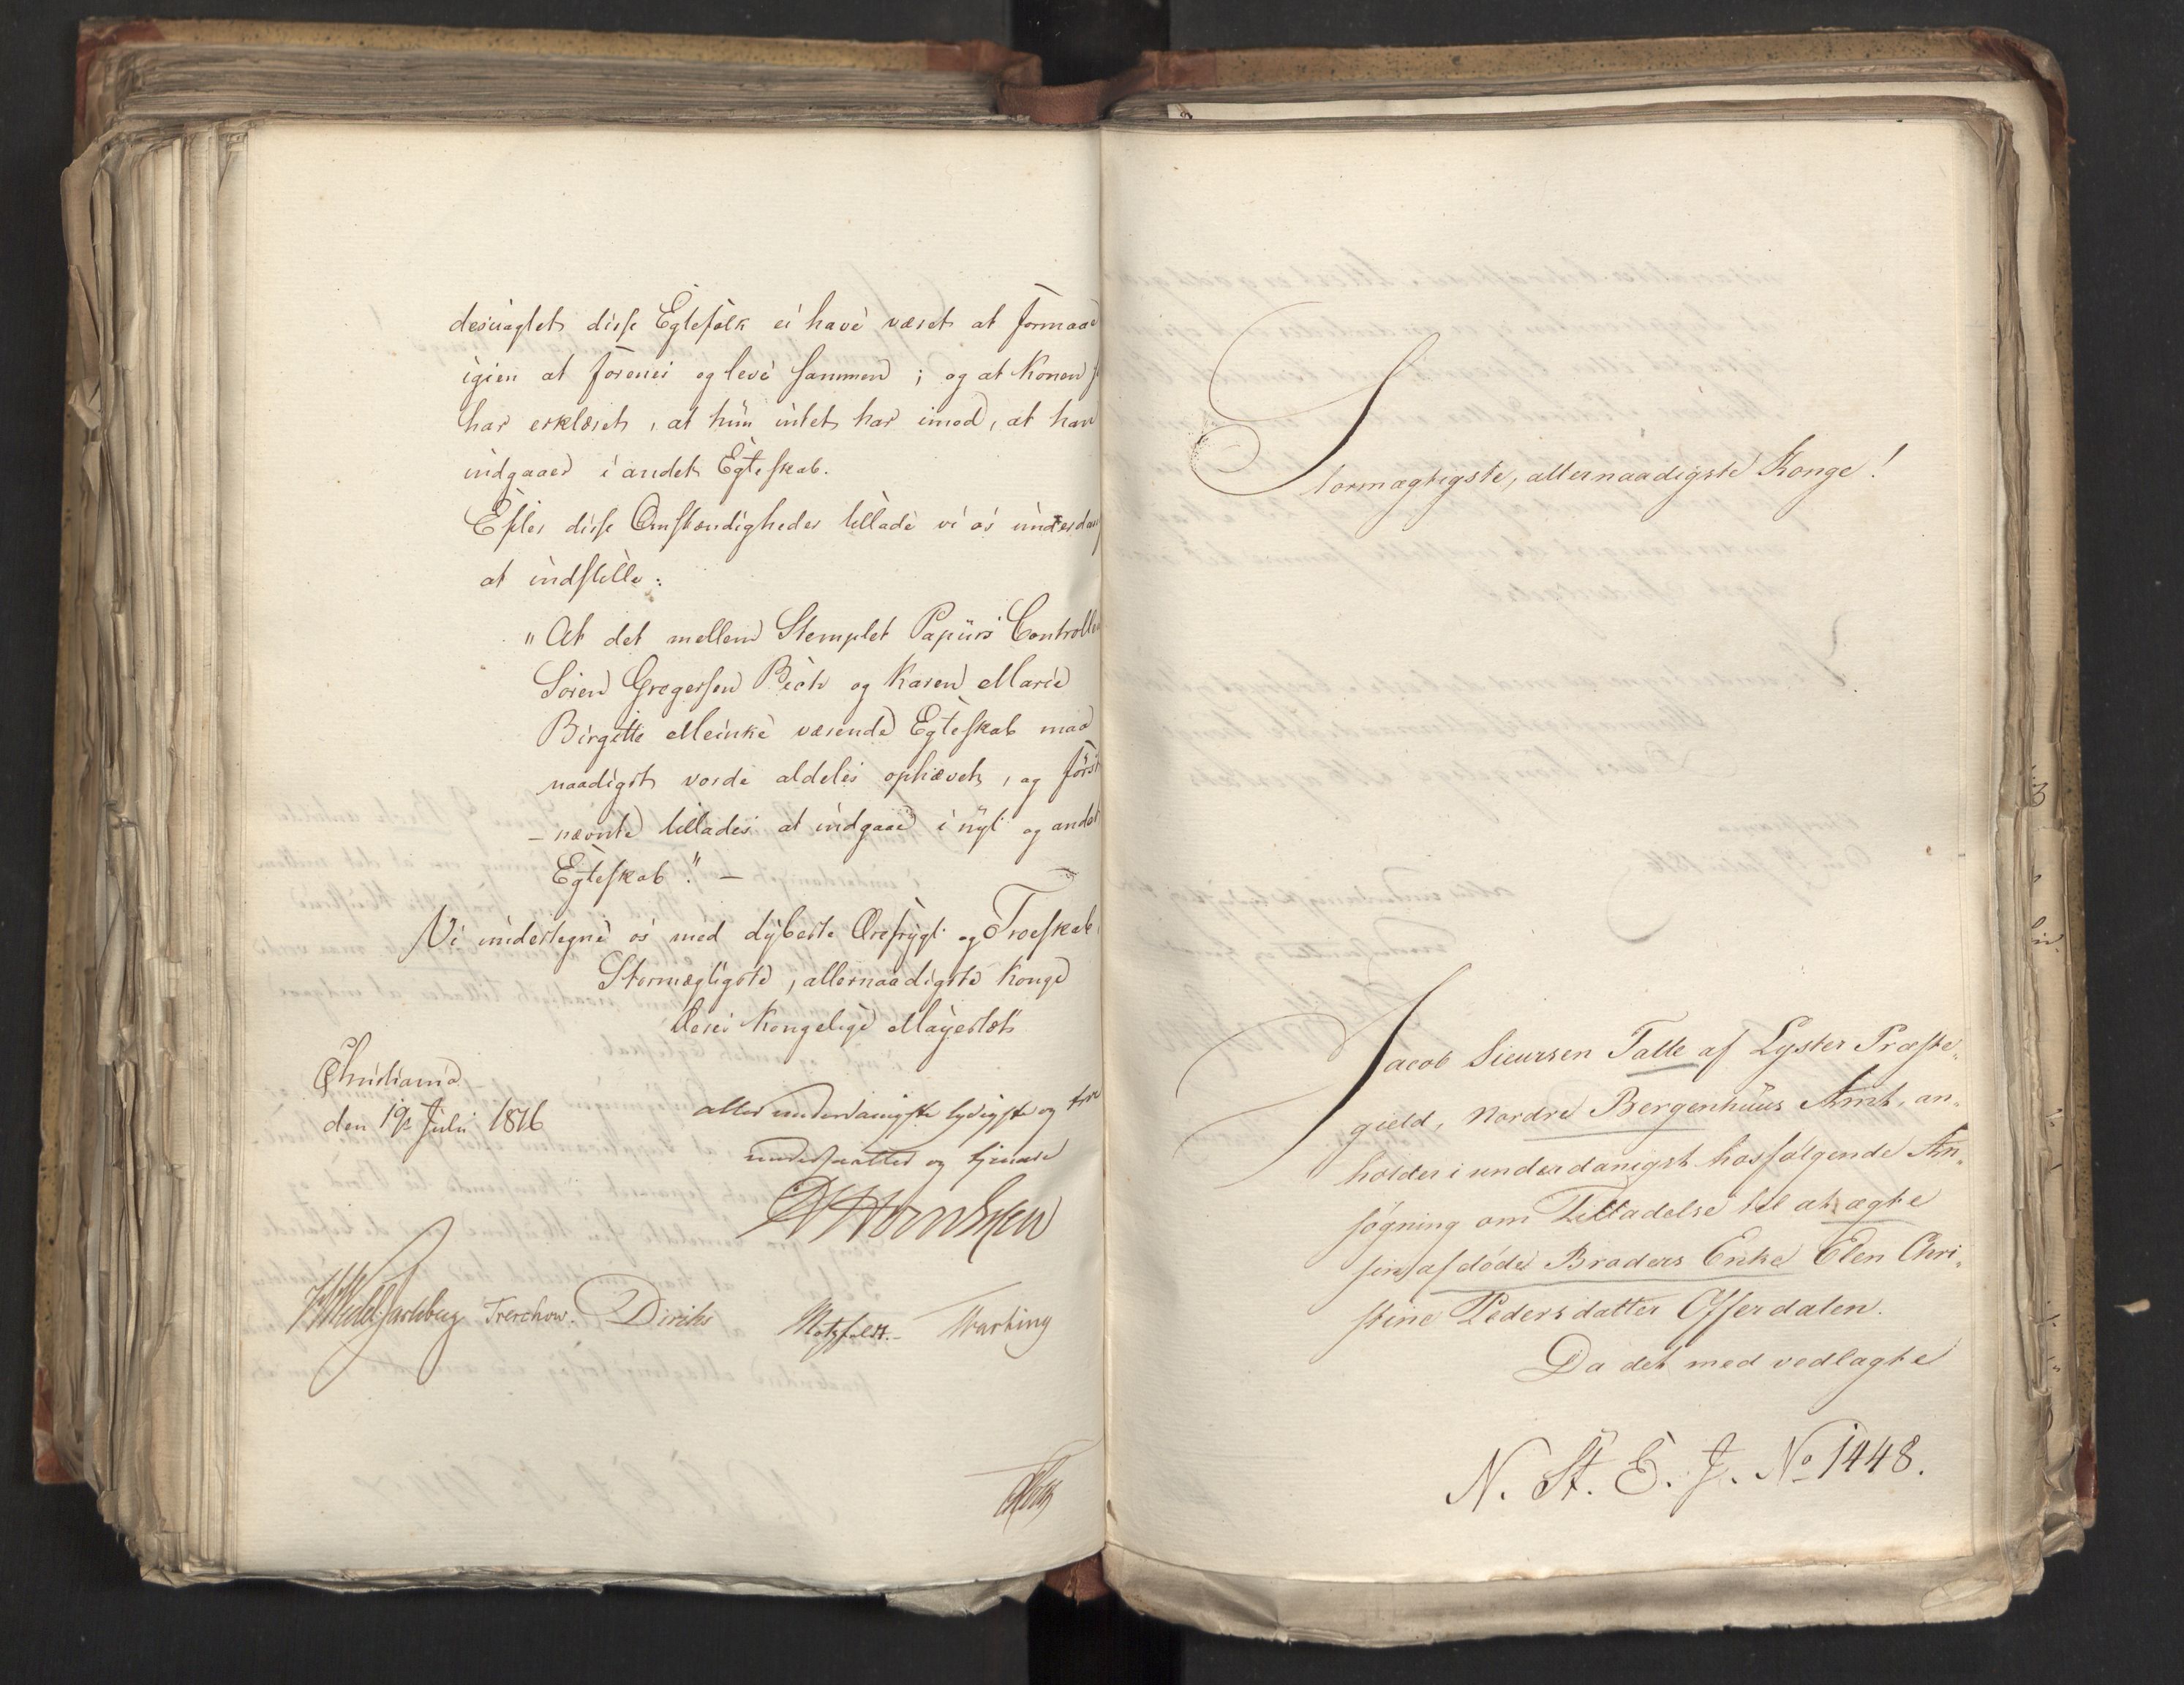 desuagtet disse Egtefolk ei have været at formaae
igien at forenes og leve sammen ; og at Konen
har erklæret, at hun intet har imod, at han
indgaaer i andet Egteskab.
Efter disse Omstændigheder tillade vi os underdan
at indstille :
"At det mellem Stemplet Papiirs Controlle
Sören Gregersen og Karen Marie
Birgitte Meinke værende Egteskab maa
naadigst vorde aldeles ophævet, og först
-nævnte tillades at indgaae i nyt og andet
Egteskab". -
Vi undertegne os med dybeste Ærefrygt og Troeskab
Stormægtigste, allernaadigste Konge
Deres Kongelige Mayestæts
Christiania
den 19de Julii 1816
allerunderdanigste lydigste og troe
undersaatter og tjenere
Wedel Jarlsberg Treschow. Diriks Motzfeldt.- 
Stormægtigste, allernaadigste Konge!
Jacob Sieursen Talle af Lyster Præste„
gield, Nordre Bergenhuus Amt, an„
holder i underdanigst hosfølgende An„
søgning om Tilladelse til at ægte
sin afdöde Broders Enke Elen Chri„
stine Pedersdatter Offerdalen.
Da det med vedlagte
N. St. E. J. No 1448.